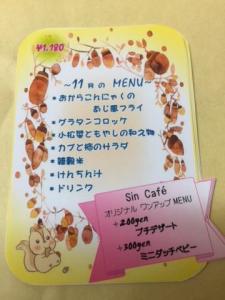 ¥1,180
~11月の MENU~
・おからこんにゃくの
あじ風フライ
・グラタンコロッケ
・小松菜ともやしの和え物
・カブと柿のサラダ
・雑穀米
・けんちん汁
・ドリンク
Sin Café
オリジナル ワンアップ MENU
+200yen
プチデザート
+300yen
ミニダッチベビー